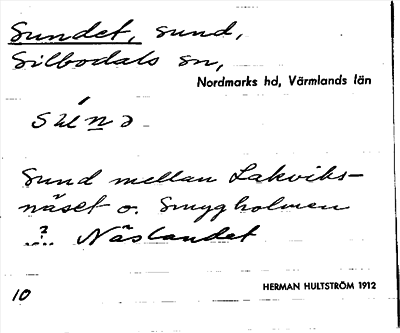 Sundet, sund,
Silbodals sn,
Nordmarks hd, Värmlands län
Sund mellan Lakviks-
näset o. Smygholmen
? Näslandet
10
HERMAN HULTSTRÖM 1912